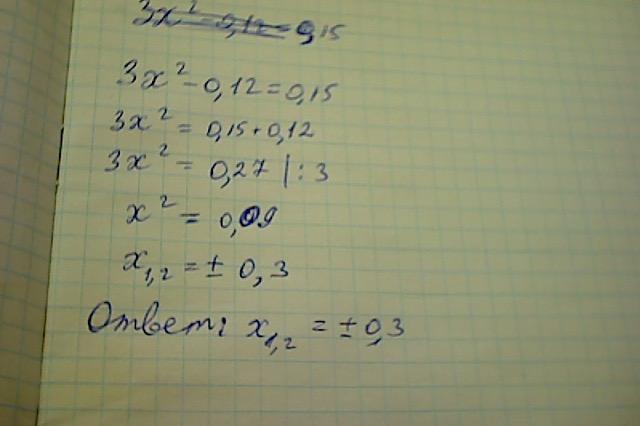 3x² - 0,12 = 0,15
3x² - 0,12 = 0,15
3x² = 0,15 + 0,12
3x² = 0,27 | : 3
x² = 0,09
x₁,₂ = ± 0,3
Ответ: x₁,₂ = ± 0,3